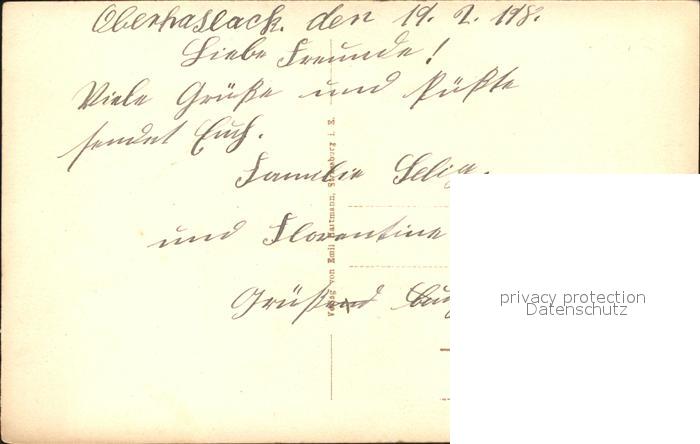 Oberhaslach. den 19. 2. 1918.
Liebe Freunde!
Viele Grüße und Küße
sendet Euch.
Familie Selig.
und Florentine
Grüßend
Verlag von Emil Hartmann, Strassburg i. E.
privacy protection
Datenschutz